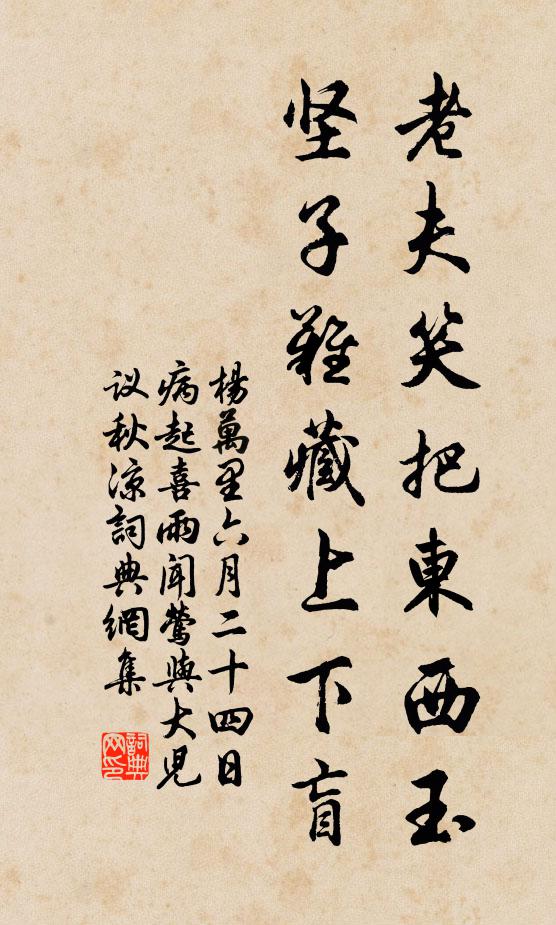 老夫笑把東西玉
坚子難藏上下盲
楊萬里六月二十四日
病起喜雨聞鶯與大児
议秋涼詞典網集
詞典网印